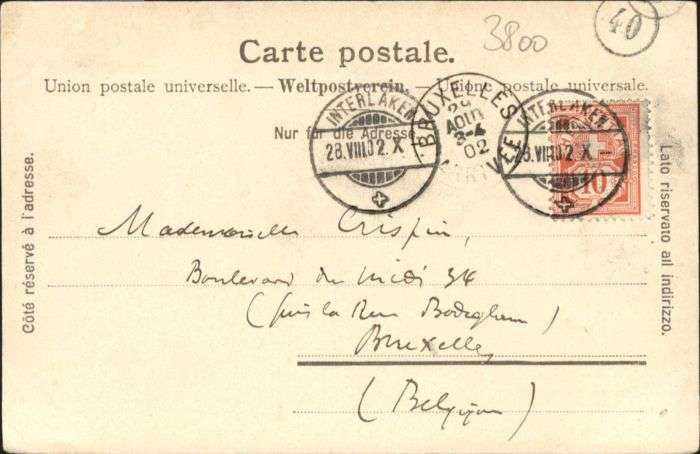 3800
40
Carte postale.
Union postale universelle. — Weltpostverein. — Unione postale universale.
Nur für die Adresse
INTERLAKEN
28.VIII.02.X
BRUXELLES
AOUT
3-4
02
ARRIVEE
INTERLAKEN
28.VIII.02.X–
10
Côté réservé à l'adresse.
Lato riservato all indirizzo.
Mademoiselle Crispin,
Boulevard du Midi
(près la Rue Bodeghem)
Bruxelles
(Belgique)